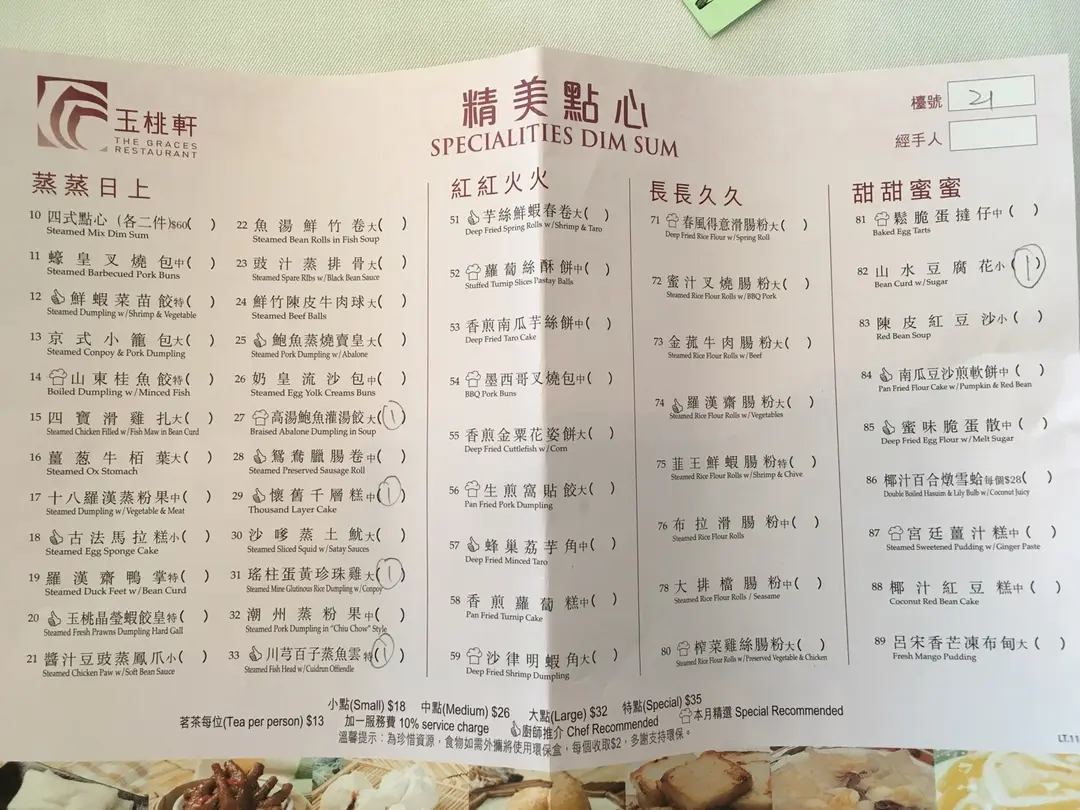 玉桃軒
THE GRACES
RESTAURANT
精美點心
SPECIALITIES DIM SUM
檯號 21
經手人
蒸蒸日上
10 四式點心 (各二件)$60( )
Steamed Mix Dim Sum
11 蠔皇叉燒包中( )
Steamed Barbecued Pork Buns
12 鮮蝦菜苗餃特( )
Steamed Dumpling w/Shrimp & Vegetable
13 京式小籠包大( )
Steamed Conpoy & Pork Dumpling
14 山東桂魚餃特( )
Boiled Dumpling w/Minced Fish
15 四寶滑雞扎大( )
Steamed Chicken Filled w/Fish Maw in Bean Curd
16 薑葱牛栢葉大( )
Steamed Ox Stomach
17 十八羅漢蒸粉果中( )
Steamed Dumpling w/Vegetable & Meat
18 古法馬拉糕小( )
Steamed Egg Sponge Cake
19 羅漢齋鴨掌特( )
Steamed Duck Feet w/Bean Curd
20 玉桃晶瑩蝦餃皇特( )
Steamed Fresh Prawns Dumpling Hard Gall
21 醬汁豆豉蒸鳳爪小( )
Steamed Chicken Paw w/Soft Bean Sauce
22 魚湯鮮竹卷大( )
Steamed Bean Rolls in Fish Soup
23 豉汁蒸排骨大( )
Steamed Spare RIbs w/Black Bean Sauce
24 鮮竹陳皮牛肉球大( )
Steamed Beef Balls
25 鮑魚蒸燒賣皇大( )
Steamed Pork Dumpling w/Abalone
26 奶皇流沙包中( )
Steamed Egg Yolk Creams Buns
27 高湯鮑魚灌湯餃大(1)
Braised Abalone Dumpling in Soup
28 鴛鴦臘腸卷中( )
Steamed Preserved Sausage Roll
29 懷舊千層糕中(1)
Thousand Layer Cake
30 沙嗲蒸土魷大( )
Steamed Sliced Squid w/Satay Sauces
31 瑤柱蛋黃珍珠雞大(1)
Steamed Mine Glutinous Rice Dumpling w/Conpoy
32 潮州蒸粉果中( )
Steamed Pork Dumpling in "Chiu Chow" Style
33 川芎百子蒸魚雲特(1)
Steamed Fish Head w/Cuidrun Offiendle
紅紅火火
51 芋絲鮮蝦春卷大( )
Deep Fried Spring Rolls w/Shrimp & Taro
52 蘿蔔絲酥餅中( )
Stuffed Turnip Slices Pastay Balls
53 香煎南瓜芋絲餅中( )
Deep Fried Taro Cake
54 墨西哥叉燒包中( )
BBQ Pork Buns
55 香煎金粟花姿餅大( )
Deep Fried Cuttlefish w/Corn
56 生煎窩貼餃大( )
Pan Fried Pork Dumpling
57 蜂巢荔芋角中( )
Deep Fried Minced Taro
58 香煎蘿蔔糕中( )
Pan Fried Turnip Cake
59 沙律明蝦角大( )
Deep Fried Shrimp Dumpling
長長久久
71 春風得意滑腸粉大( )
Deep Fried Rice Flour w/Spring Roll
72 蜜汁叉燒腸粉大( )
Steamed Rice Flour Rolls w/BBQ Pork
73 金菰牛肉腸粉大( )
Steamed Rice Flour Rolls w/Beef
74 羅漢齋腸粉大( )
Steamed Rice Flour Rolls w/Vegetables
75 韮王鮮蝦腸粉特( )
Steamed Rice Flour Rolls w/Shrimp & Chive
76 布拉滑腸粉中( )
Steamed Rice Flour Rolls
78 大排檔腸粉中( )
Steamed Rice Flour Rolls / Seasame
80 榨菜雞絲腸粉大( )
Steamed Rice Flour Rolls w/Preserved Vegetable & Chicken
甜甜蜜蜜
81 鬆脆蛋撻仔中( )
Baked Egg Tarts
82 山水豆腐花小(1)
Bean Curd w/Sugar
83 陳皮紅豆沙小( )
Red Bean Soup
84 南瓜豆沙煎軟餅中( )
Pan Fried Flour Cake w/Pumpkin & Red Bean
85 蜜味脆蛋散中( )
Deep Fried Egg Flour w/Melt Sugar
86 椰汁百合燉雪蛤每個$28( )
Double Boiled Hasuim & Lily Bulb w/Coconut Juicy
87 宮廷薑汁糕中( )
Steamed Sweetened Pudding w/Ginger Paste
88 椰汁紅豆糕中( )
Coconut Red Bean Cake
89 呂宋香芒凍布甸大( )
Fresh Mango Pudding
小點(Small) $18 中點(Medium) $26 大點(Large) $32 特點(Special) $35
茗茶每位(Tea per person) $13 加一服務費 10% service charge 廚師推介 Chef Recommended 本月精選 Special Recommended
溫馨提示：為珍惜資源，食物如需外攜將使用環保盒，每個收取$2，多謝支持環保。
LT.11